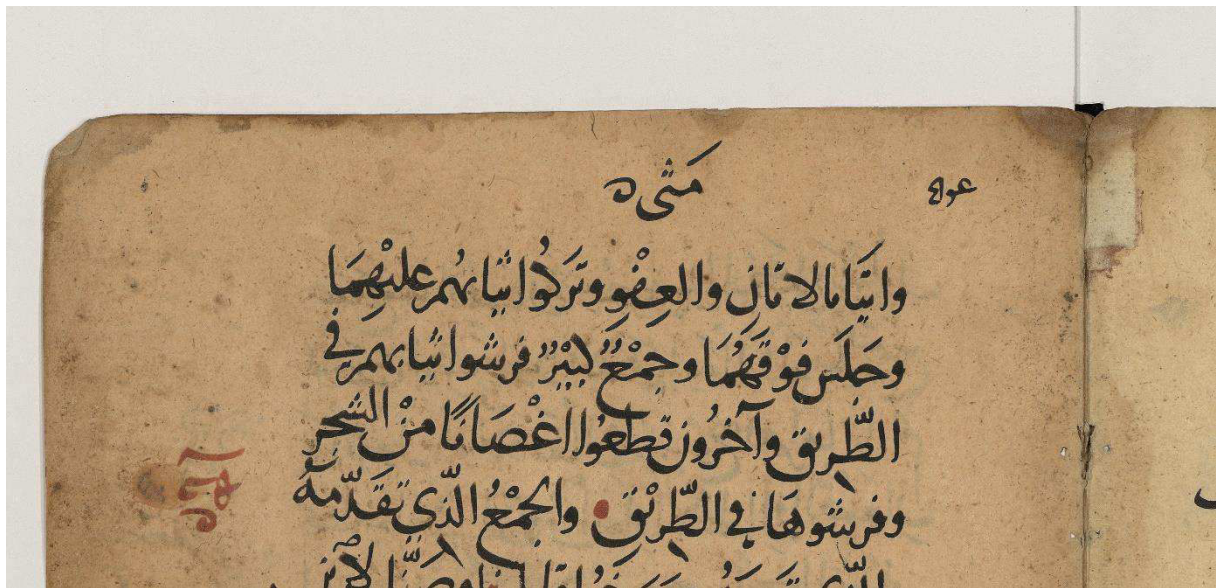 متى
واتيا بالاتان والعفو وتركوا ثيابهم عليهما
وجلس فوقهما وجمع كبير فرشوا ثيابهم في
الطريق وآخرون قطعوا اغصانا من الشجر
وفرشوها في الطريق والجمع الذي تقدمه